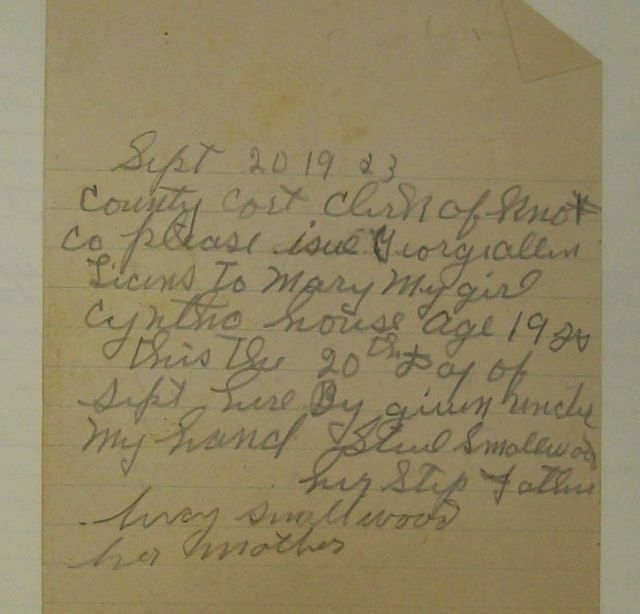 Sept 20 19 23
County Cort Clerk of Knot
Co please isue Georgeallen
Licins To Mary My girl
Cyntho house age 19 yrs
this the 20th Day of
Sept here By given under
My hand Steve Smallwood
her Step Father
Lucy smallwood
her mother